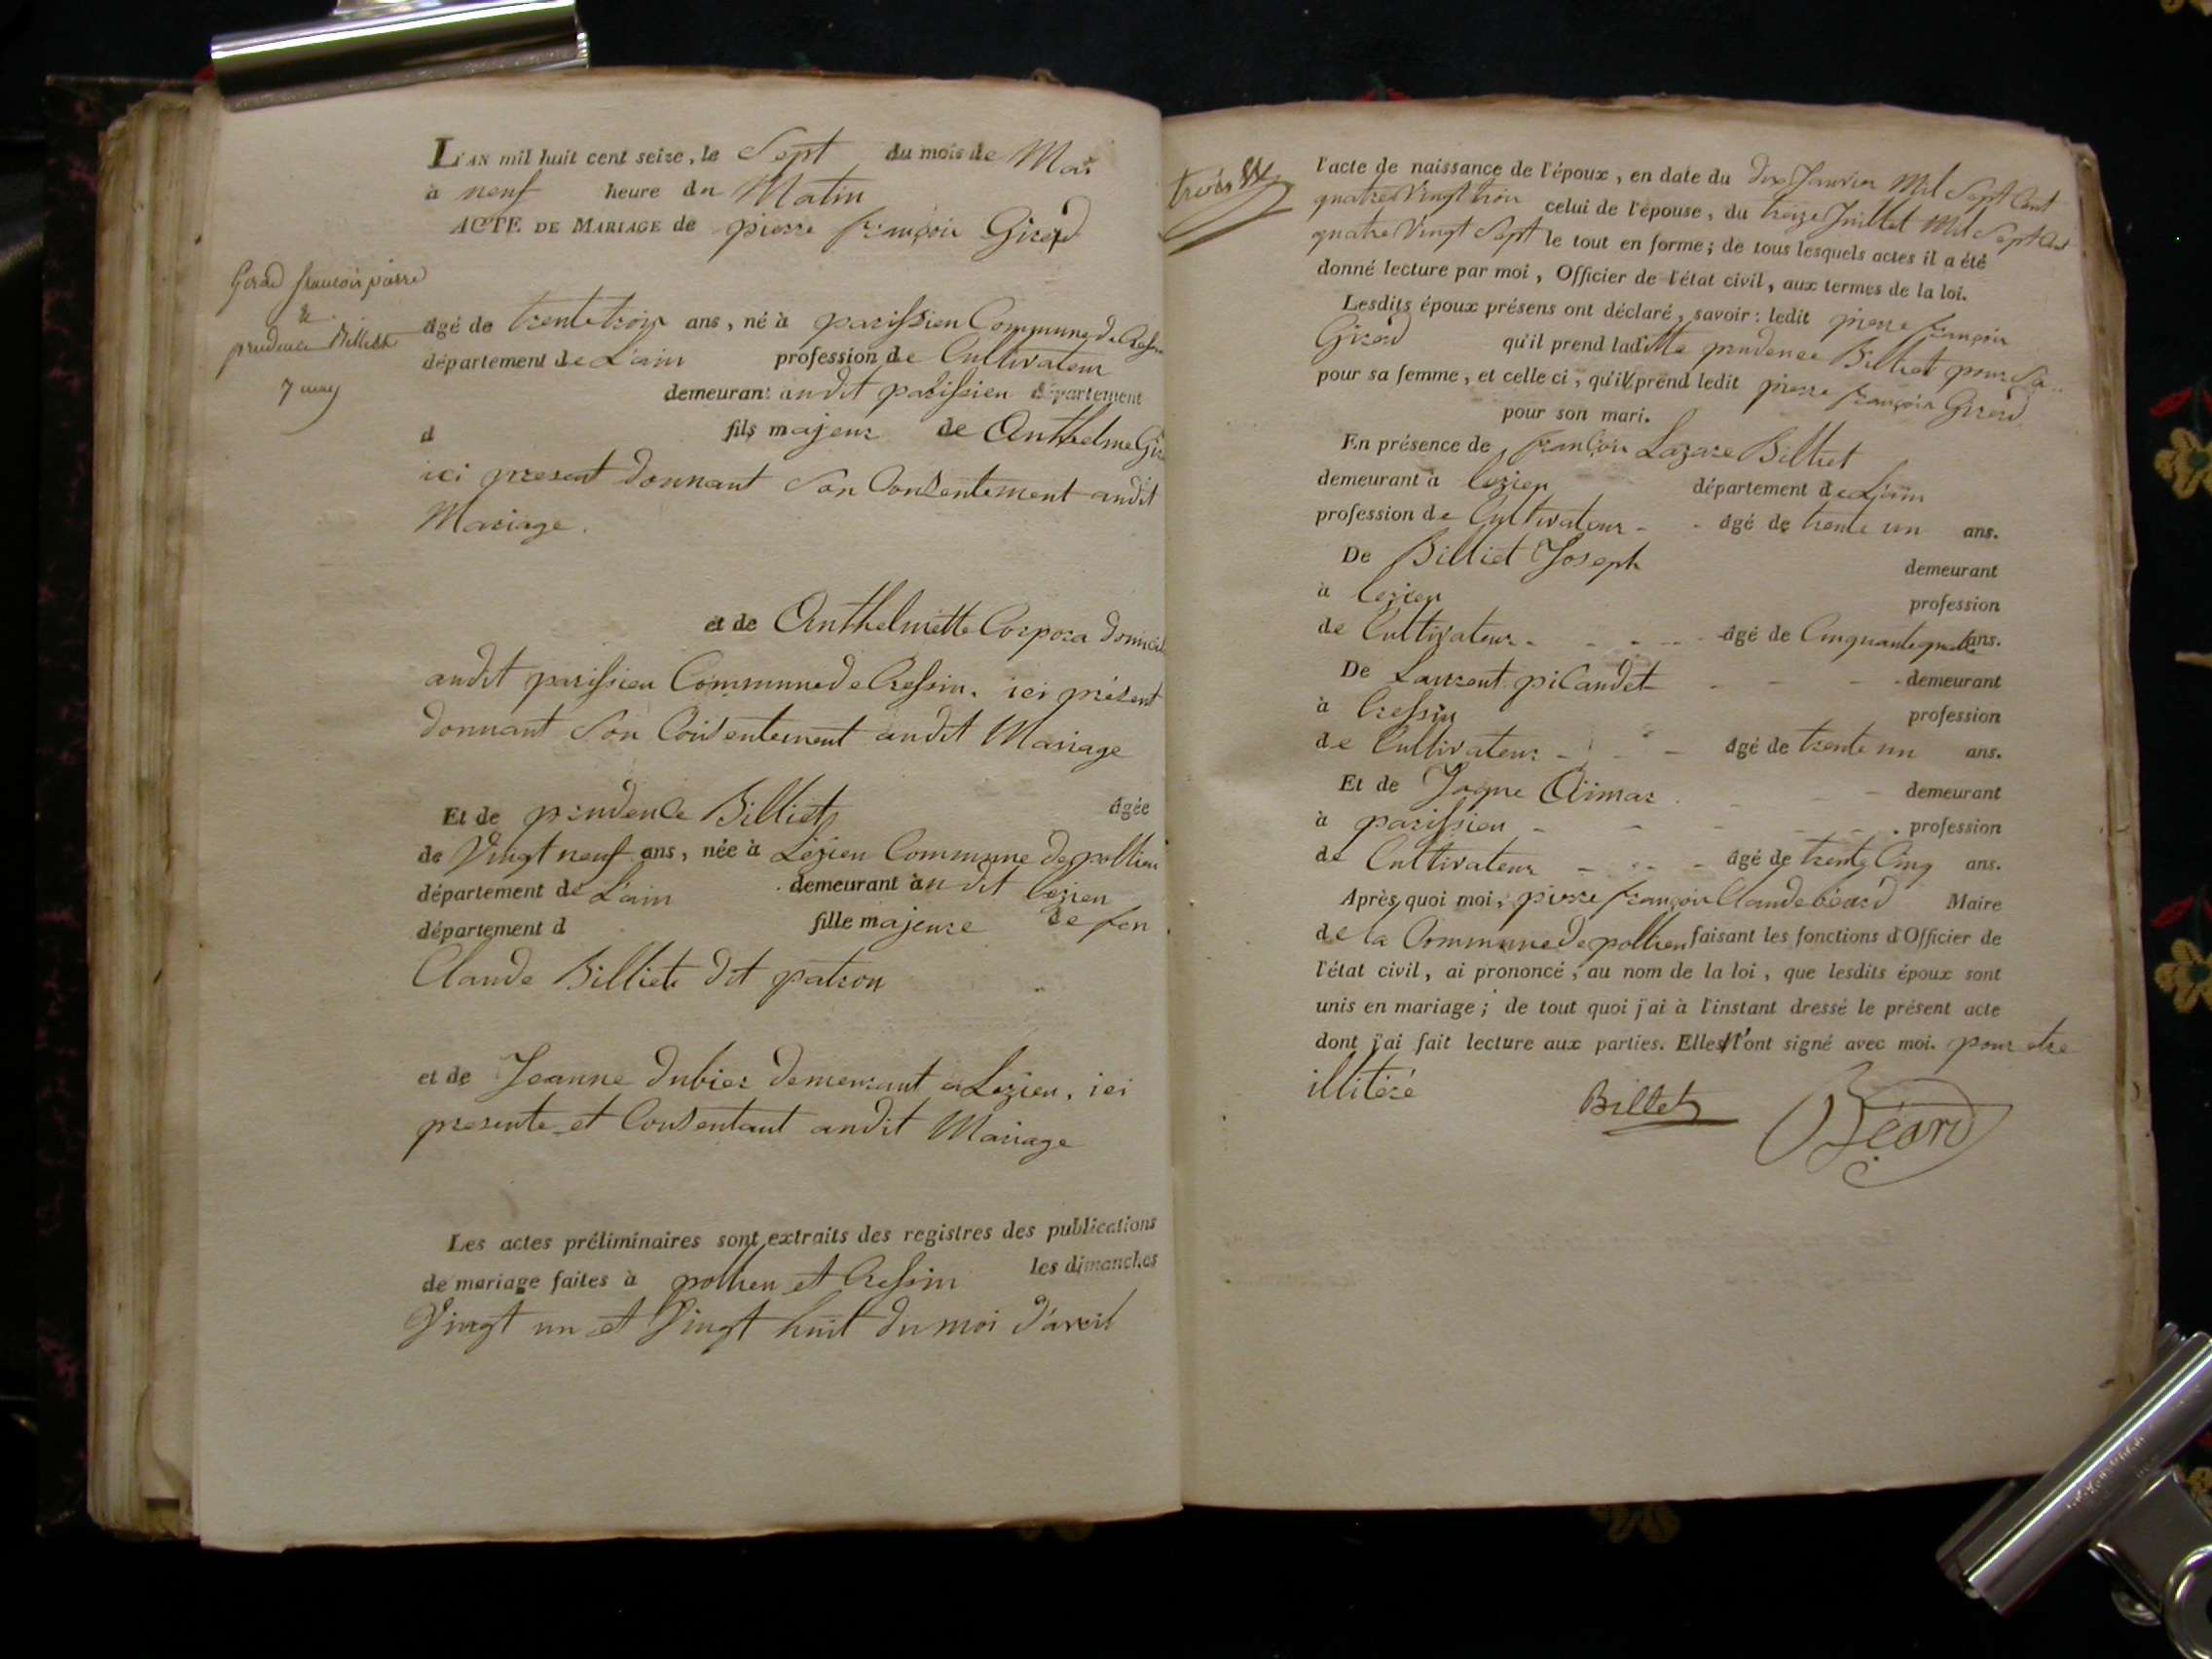 L'AN mil huit cent seize, le Sept du mois de Mai
à neuf heure du Matin
ACTE DE MARIAGE de pierre françois Girerd
Gererd francois pierre
&
prudence Billiet
7 may
âgé de trente trois ans, né à parissieu Commune de Cressin
département de L'ain profession de Cultivateur
demeurant audit parissieu département
d fils majeur de Anthelme
ici present donnant Son Consentement audit
Mariage.
et de Anthelmette Corpora
audit parissieu Commune de Cressin. ici présent
donnant Son Consentement audit Mariage
Et de prudence Billiet âgée
de Vingt neuf ans, née à Lézieu Commune de pollieu
département de L'ain demeurant audit lézieu
département d fille majeure de feu
Claude Billiet dit patron
et de Jeanne dubier demeurant à Lézieu, ici
presente et Consentant audit Mariage
Les actes préliminaires sont extraits des registres des publications
de mariage faites à pollieu et Cressin les dimanches
Vingt un et Vingt huit du moi d'avril
trois
l'acte de naissance de l'époux, en date du dix Janvier Mil Sept Cent
quatre Vingt trois celui de l'épouse, du treize Juillet Mil Sept Cent
quatre Vingt Sept le tout en forme; de tous lesquels actes il a été
donné lecture par moi, Officier de l'état civil, aux termes de la loi.
Lesdits époux présens ont déclaré, savoir: ledit pierre françois
Girerd qu'il prend laditte prudence Billiet pour Sa
pour sa femme, et celle ci, qu'il prend ledit pierre françois Girerd
pour son mari.
En présence de françois Lazare Billiet
demeurant à lezieu département de L'ain
profession de Cultivateur - - âgé de trente un ans.
De Billiet Joseph demeurant
à lezieu profession
de Cultivateur - - - - âgé de Cinquante quatre ans.
De Laurent picaudet - - - demeurant
à Cressin profession
de Cultivateur - - - âgé de trente un ans.
Et de Jaque Aimar - - demeurant
à parissieu - - - - - profession
de Cultivateur - - - âgé de trente Cinq ans.
Après quoi moi, pierre françois Claude béard Maire
de la Commune de pollieu faisant les fonctions d'Officier de
l'état civil, ai prononcé, au nom de la loi, que lesdits époux sont
unis en mariage; de tout quoi j'ai à l'instant dressé le présent acte
dont j'ai fait lecture aux parties. Elles l'ont signé avec moi. pour etre
illitéré
Billet Béard